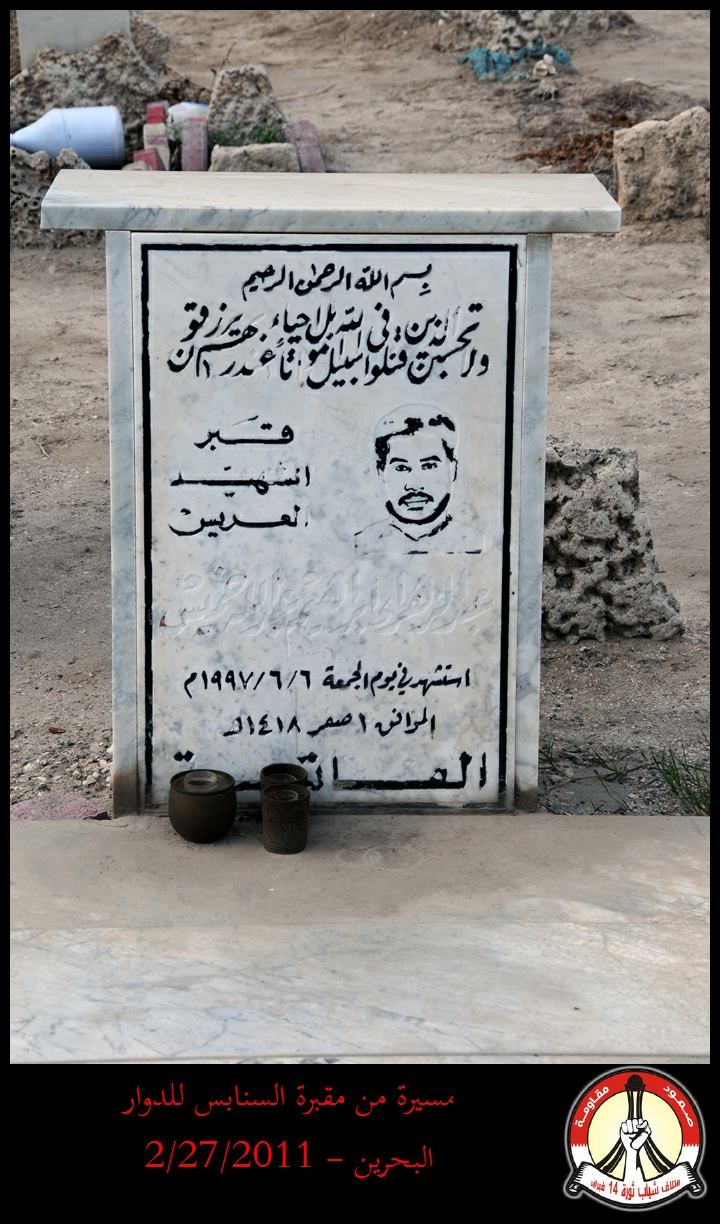 بِسم الله الرحمن الرحيم
ولا تحسبن الذين قتلوا في سبيل الله امواتا بل احياء عند ربهم يرزقون
قــبر
الشهيــد
العـريس
عبدالزهراء ابراهيم
استشهد في يوم الجمعة ٦/٦/١٩٩٧م
الموافق ١ صفر ١٤١٨هـ
الفـاتحـة
مسيرة من مقبرة السنابس للدوار
البحرين – 2/27/2011
صمود مقاومة
ائتلاف شباب ثورة 14 فبراير